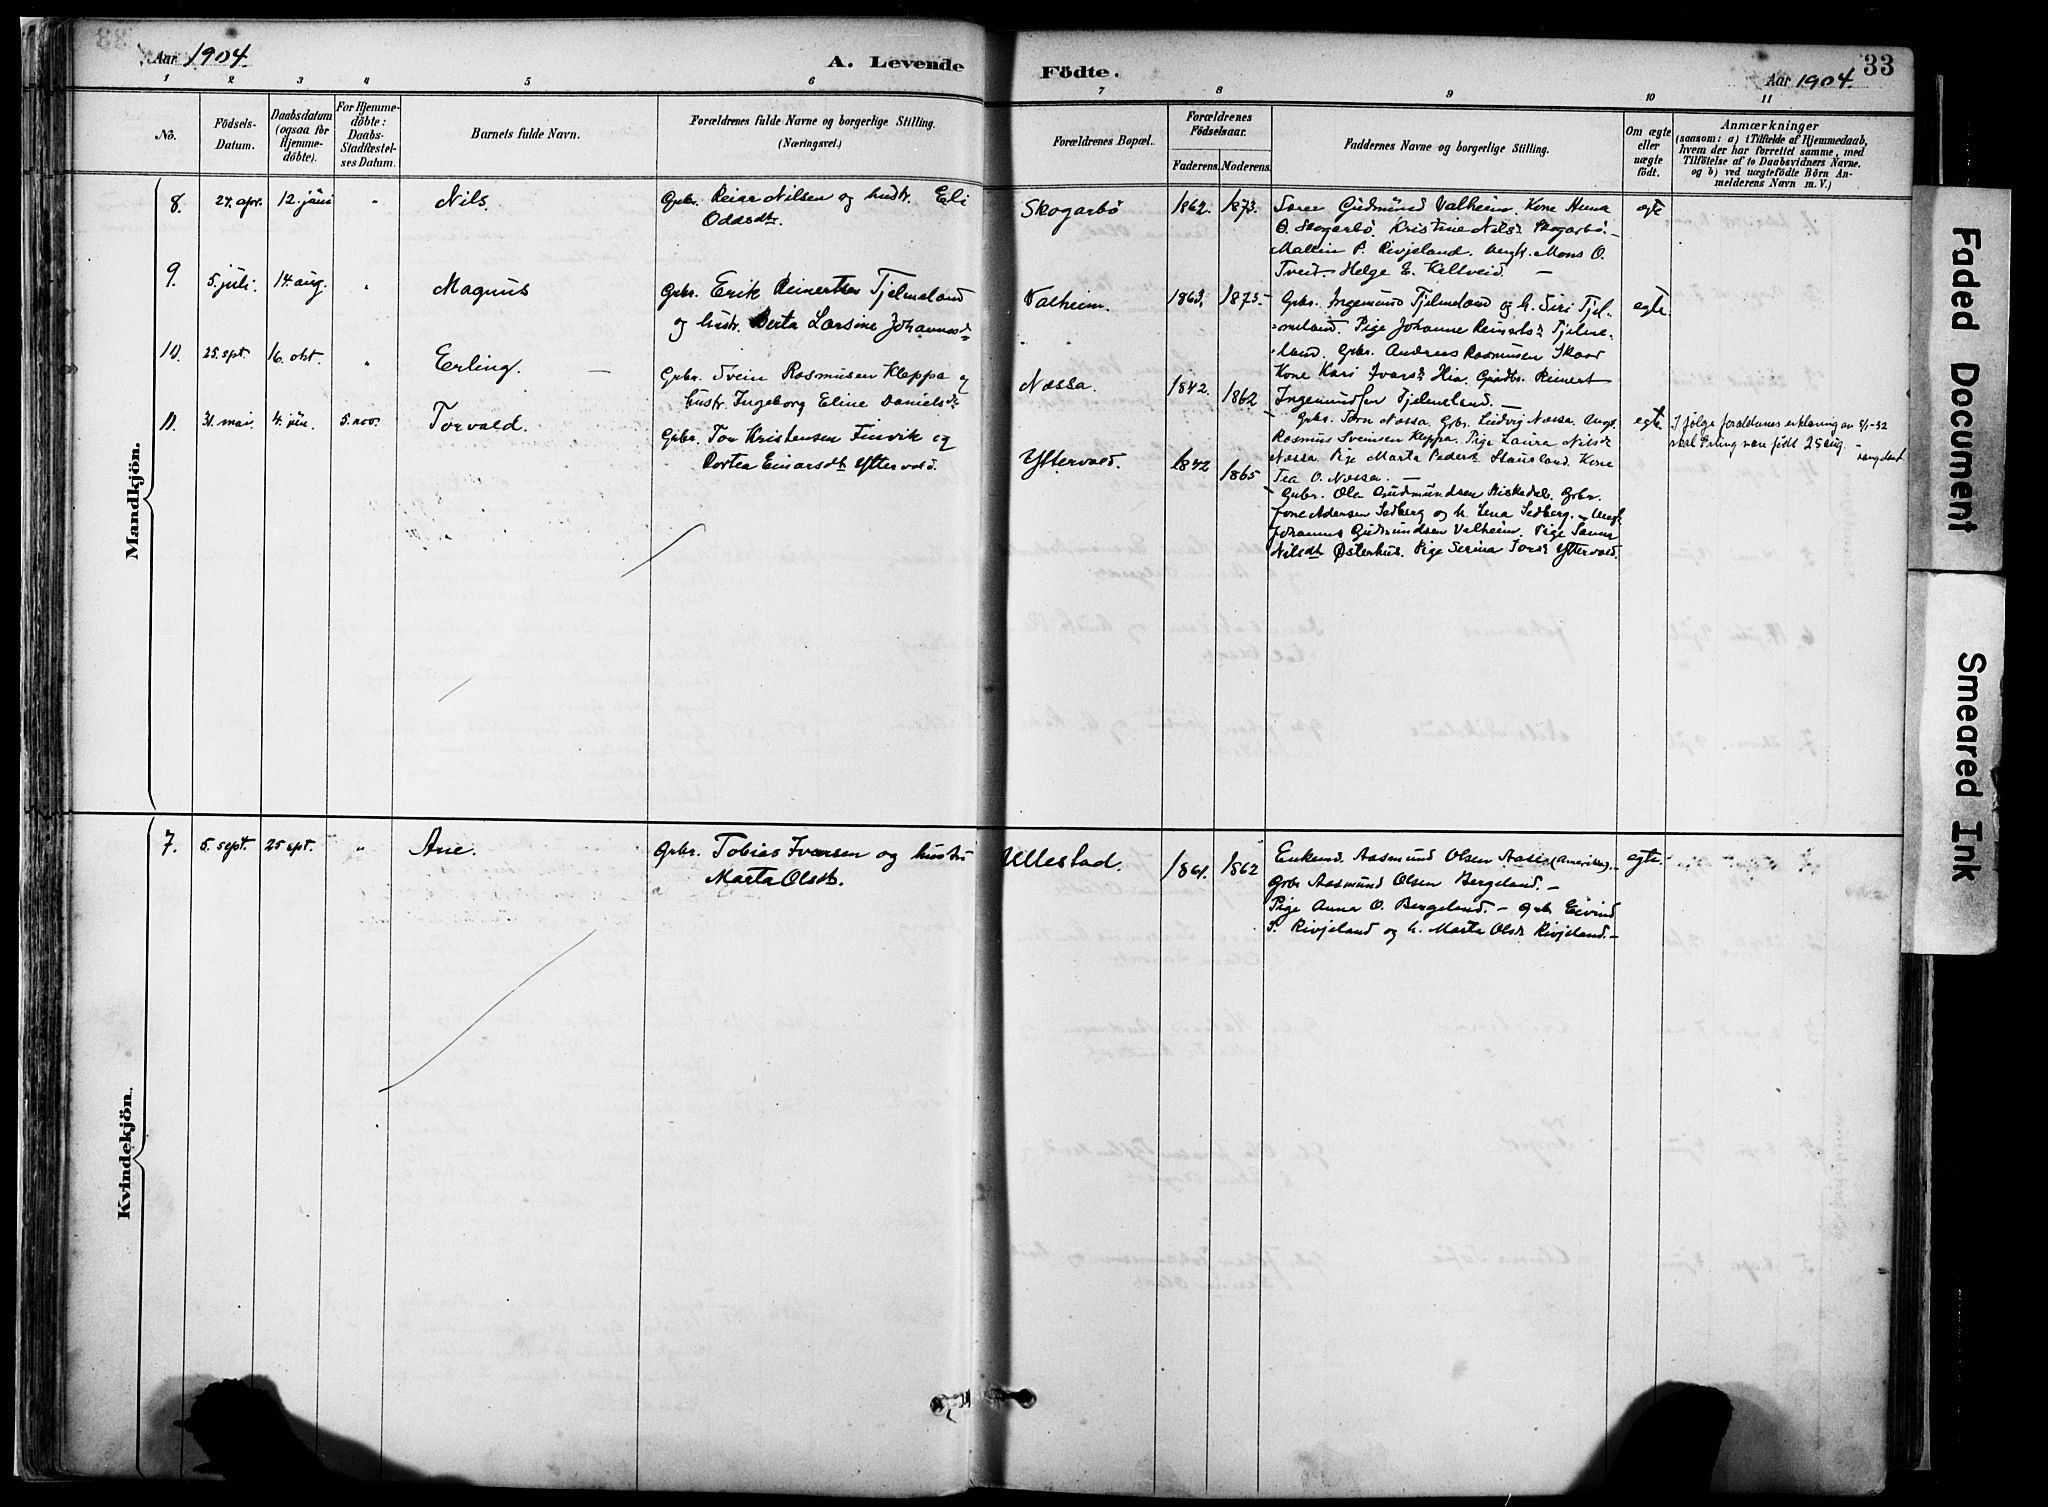 Aar 1904. A. Levende Födte. Aar 1904. 33
1 2 3 4 5 6 7 8 9 10 11
Nō. Födsels-Datum. Daabsdatum (ogsaa for Hjemmedöbte). For Hjemmedöbte: Daabs-Stadfæstelses Datum. Barnets fulde Navn. Forældrenes fulde Navne og borgerlige Stilling. (Næringsvei.) Forældrenes Bopæl. Forældrenes Födselsaar. Faderens. Moderens. Faddernes Navne og borgerlige Stilling. Om ægte eller uægte födt. Anmærkninger (saasom: a) i Tilfælde af Hjemmedaab, hvem der har forrettet samme, med Tilföielse af to Daabsvidners Navne. og b) ved uægtefödte Börn Anmelderens Navn m. V.)
Mandkjön.
8. 27. apr. 12. juni " Nils. Gbr. Reiar Nilsen og hustr. Eli
Oddsdtr.
Skogarbö 1862. 1873. Gudmund Valheim. Kone Anna
O. Skogarbö. Kristine Nilsd. Skogarbö. –
Mallin P. Rivjeland. Ungk. Mons O.
Tveit. Helge E. Keltveid. –
egte
9. 5. juli. 14. aug. " Magnus Gbr. Erik Reinertsen Tjelmeland
og hustr. Berta Larsine Johannesd.
Valheim. 1863. 1873. – Gbr. Ingemund Tjelmeland og h. Siri Tjel-
meland. Pige Johanne Reinertsd. Tjelme-
land. Gbr. Andreas Rasmusen Skaar
Kone Kari Ivarsd. Hia. Reinert
Ingemundsen Tjelmeland. –
egte.
10. 25. spt. 16. okt " Erling. – Gbr. Svein Rasmusen Kleppa og
hustr. Ingeborg Eline Danielsd.
Næssa. 1842. 1862 – Gbr. Torn Næssa. Gbr. Ludvig Næssa. Ung.
Rasmus Svensen Kleppa. Pige Laura Nilsd.
Næssa. Pige Marta Pedersd. Kone
Tea O. Næssa. –
egte. I følge foreldrenes erklæring av 5/1-32
skal Erling være født 25 aug.
11. 31. mai. 4. jun. 5. nov. Torvald. Gbr. Tor Kristensen Finvik og
Dortea Einarsdt. Yttervold.
Yttervold. 1842 1865 – Gbr. Ola Gudmundsen Fiskedal. Gbr.
Jone Adersen Sedberg og h. Lena Sedberg. – Ungk.
Johannes Gudmundsen Valheim. Pige Sanna
Nilsdt. Østerhus. Pige Serina Torsd. Yttervold.
Kvindekjön.
7. 5. sept. 25 spt. " Ane. Gbr. Tobias Iversen og hustr.
Marta Olsdt.
Ullestad. 1861. 1862 Enkemd. Aasmund Olsen Aase (Amerika). –
Gbr. Aasmund Olsen Bergeland. –
Pige Anna O. Bergeland. – Gbr. Eivind
S. Rivjeland og h. Marta Olsd. Rivjeland. –
egte.
Faded Document
Smeared Ink